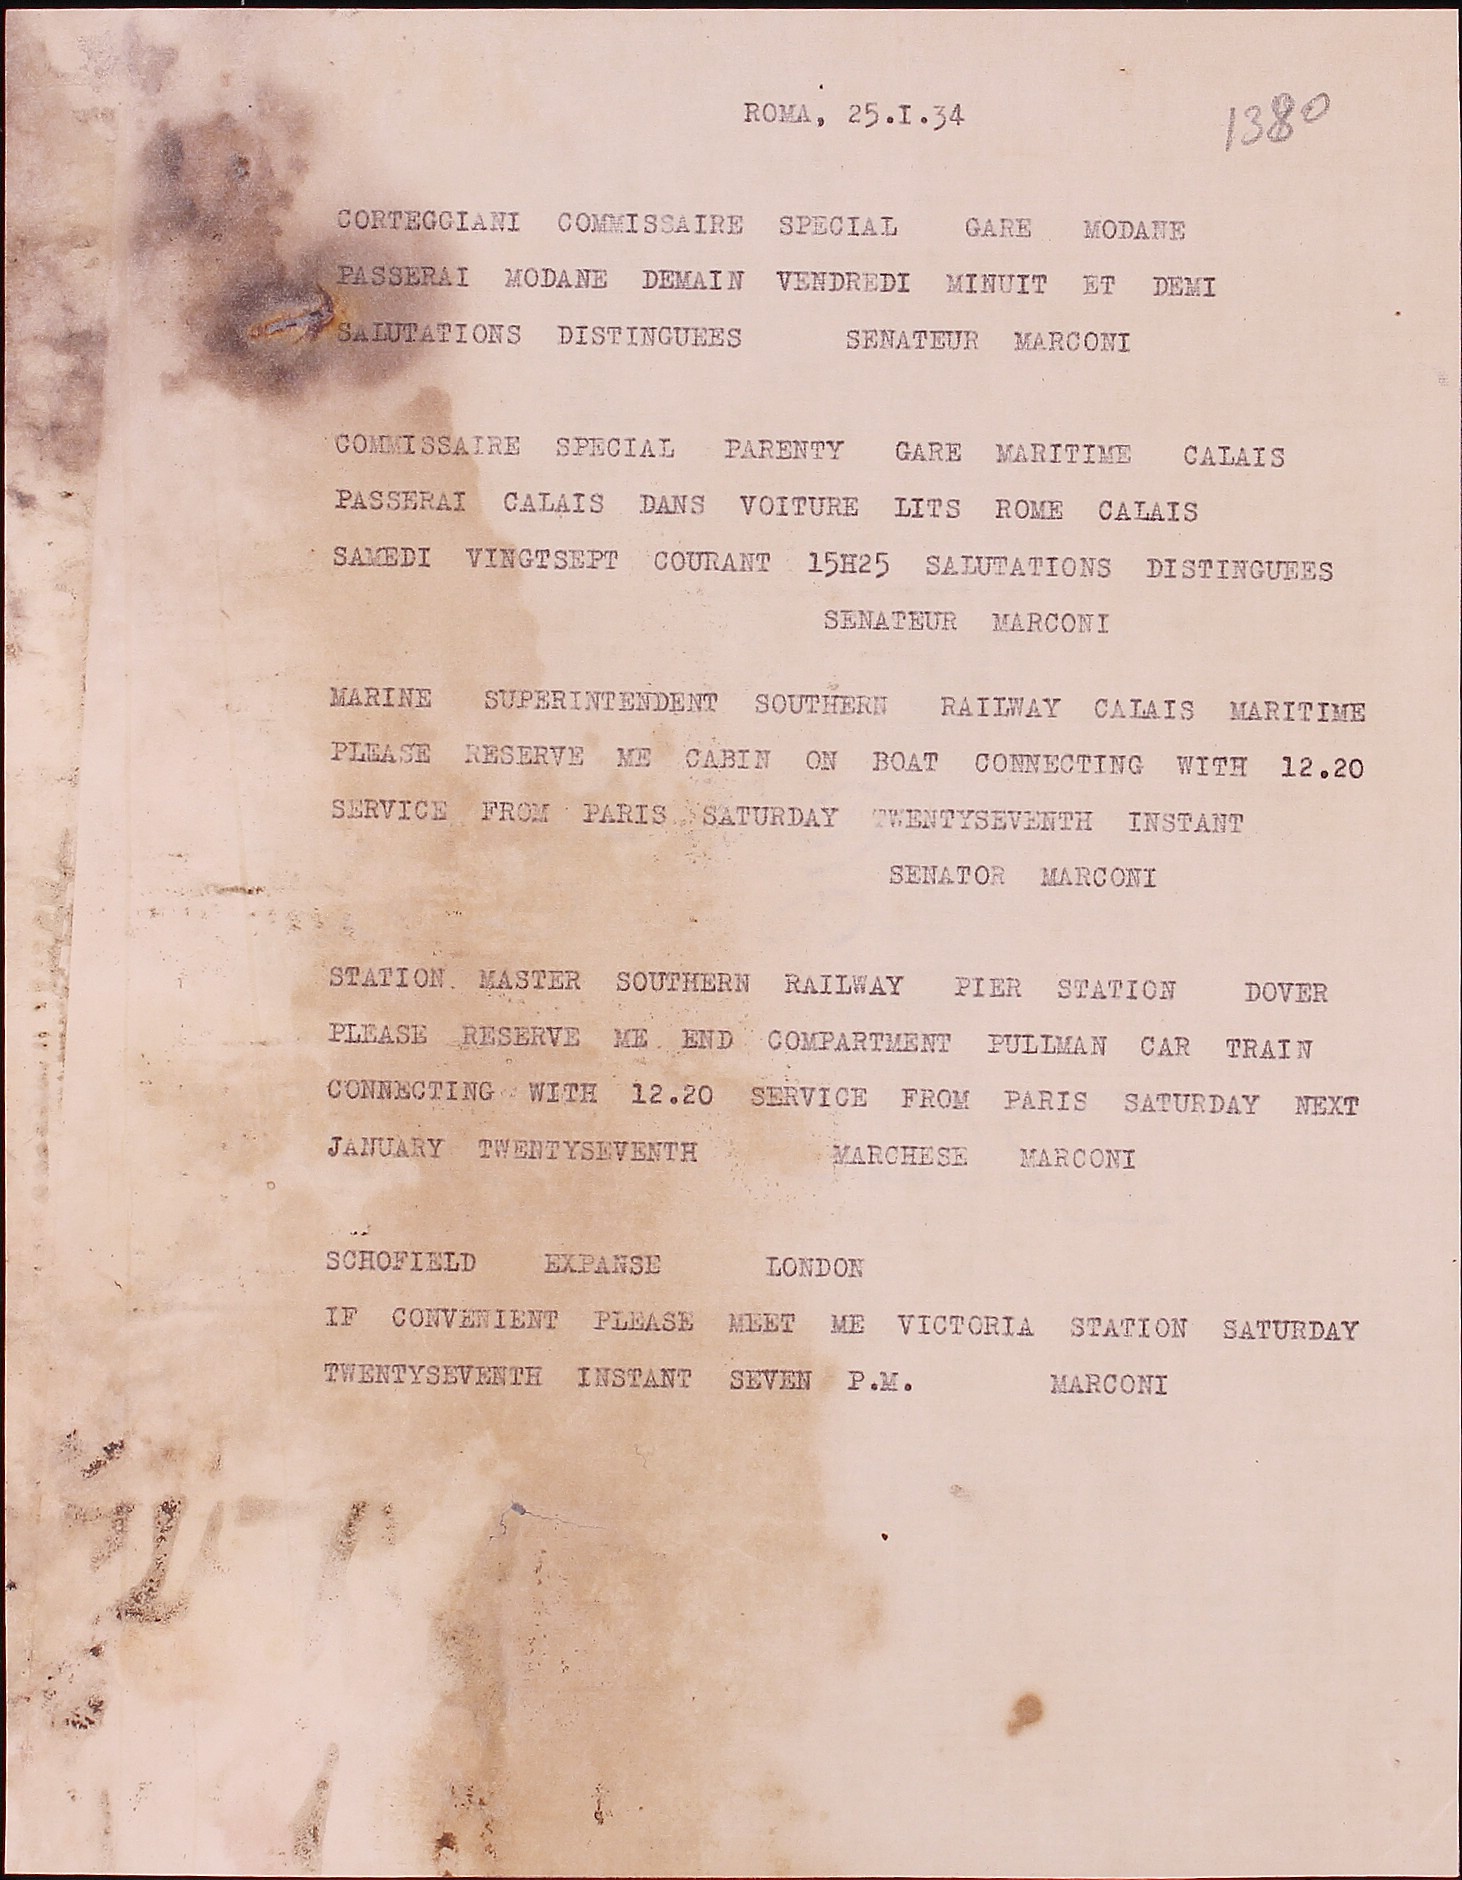 ROMA, 25.I.34
1380
CORTEGGIANI COMMISSAIRE SPECIAL GARE MODANE
PASSERAI MODANE DEMAIN VENDREDI MINUIT ET DEMI
SALUTATIONS DISTINGUEES SENATEUR MARCONI
COMMISSAIRE SPECIAL PARENTY GARE MARITIME CALAIS
PASSERAI CALAIS DANS VOITURE LITS ROME CALAIS
SAMEDI VINGTSEPT COURANT 15H25 SALUTATIONS DISTINGUEES
SENATEUR MARCONI
MARINE SUPERINTENDENT SOUTHERN RAILWAY CALAIS MARITIME
PLEASE RESERVE ME CABIN ON BOAT CONNECTING WITH 12.20
SERVICE FROM PARIS SATURDAY TWENTYSEVENTH INSTANT
SENATOR MARCONI
STATION MASTER SOUTHERN RAILWAY PIER STATION DOVER
PLEASE RESERVE ME END COMPARTMENT PULLMAN CAR TRAIN
CONNECTING WITH 12.20 SERVICE FROM PARIS SATURDAY NEXT
JANUARY TWENTYSEVENTH MARCHESE MARCONI
SCHOFIELD EXPANSE LONDON
IF CONVENIENT PLEASE MEET ME VICTORIA STATION SATURDAY
TWENTYSEVENTH INSTANT SEVEN P.M. MARCONI